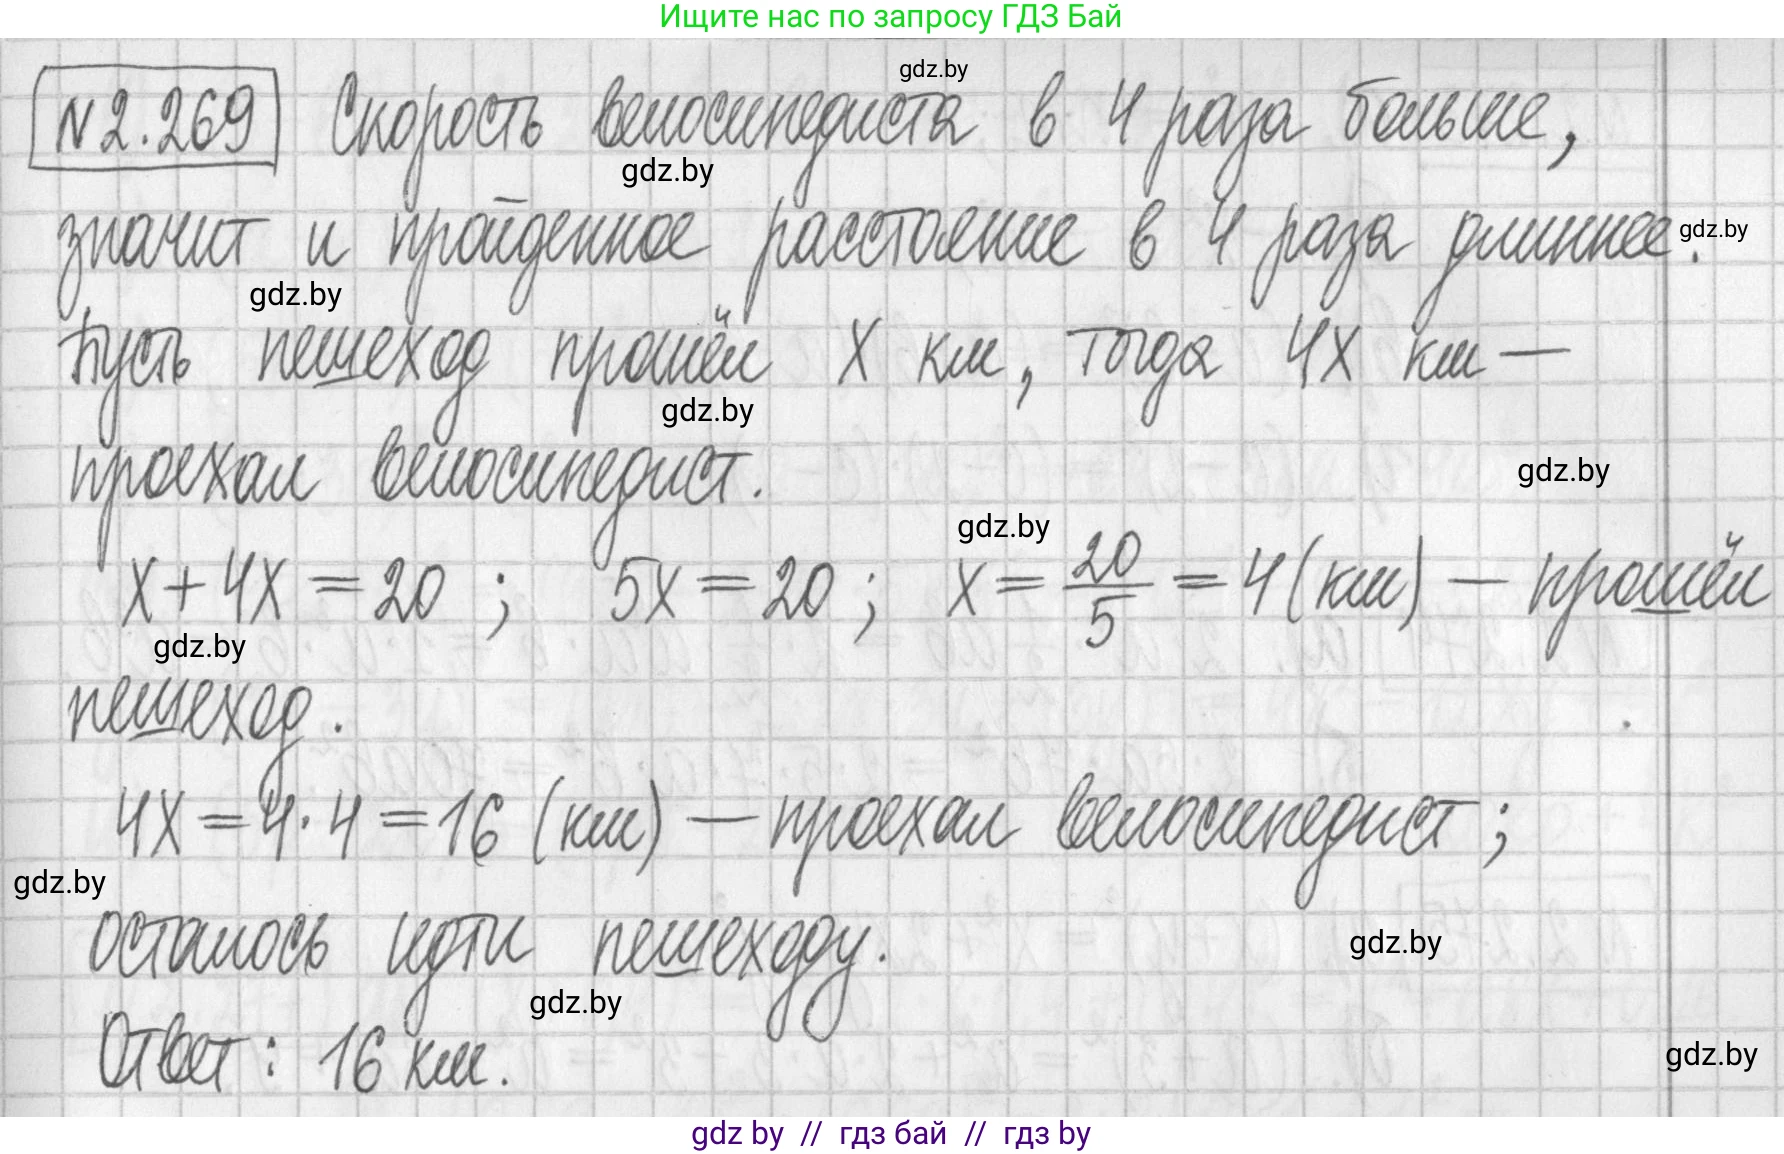 Ищите нас по запросу ГДЗ Бай
gdz.by
№2.269 Скорость велосипедиста в 4 раза больше,
gdz.by
значит и пройденное расстояние в 4 раза длиннее. gdz.by
gdz.by
Пусть пешеход прошёл x км, тогда 4x км —
gdz.by
проехал велосипедист.
gdz.by
gdz.by
x + 4x = 20 ; 5x = 20 ; x = 20/5 = 4 (км) — прошёл
gdz.by
пешеход.
4x = 4 · 4 = 16 (км) — проехал велосипедист ;
gdz.by
осталось идти пешеходу.
gdz.by
gdz.by
Ответ : 16 км.
gdz.by
gdz by // гдз бай // гдз by